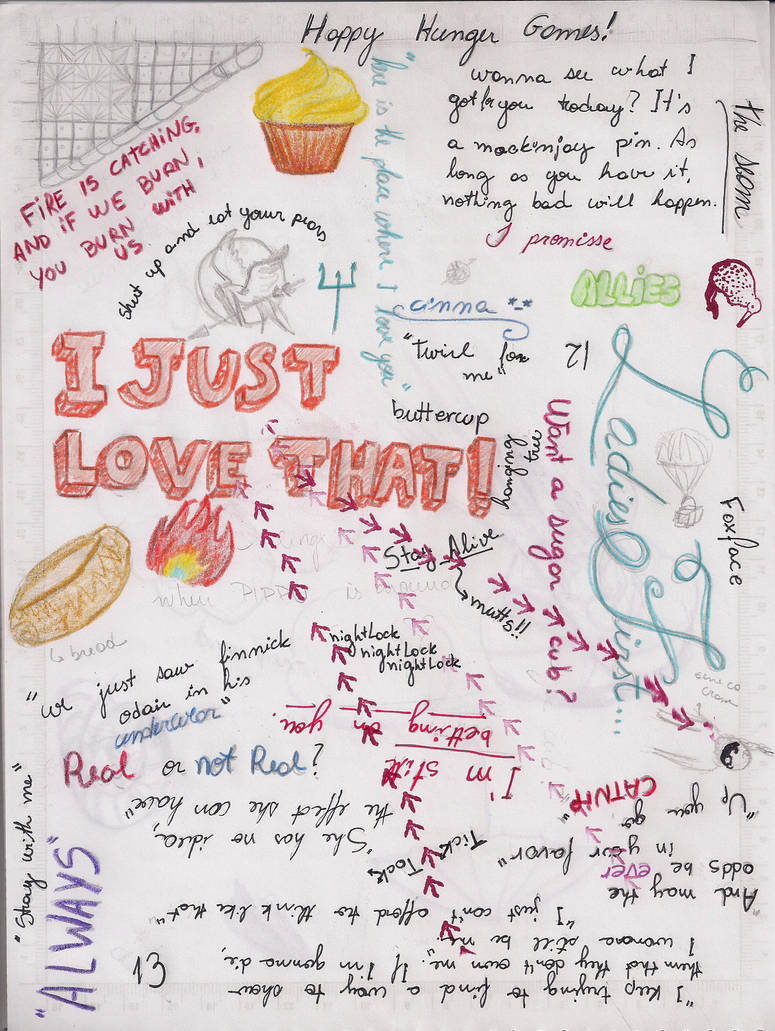 Happy Hunger Games!
wanna see what I
got for you today? It's
a mockinjay pin. As
long as you have it,
nothing bad will happen.
I promisse
the seam
"here is the place where I love you"
FIRE IS CATCHING,
AND IF WE BURN,
YOU BURN WITH
US
Shut up and eat your pears
ALLIES
cinna *-*
"twirl for
me"
12
I JUST
LOVE THAT!
buttercup
hanging
tree
Want a sugar cub?
Ladies First...
Foxface
Stay Alive
mutts!!
when
is
bread
nightLock
nightLock
nightLock
"we just saw finnick
odair in his
underwear"
I'm still
betting on
you.
Real or not Real?
"She has no idea,
the effect she can have"
CATNIP
"Up you
go"
"And may the
odds be ever
in your favor"
Tick,
Tock
"Stay with me"
"ALWAYS"
"I just can't afford to think like that"
"I keep trying to find a way to show
them that they don't own me. If I'm gonna die,
I wanna still be me"
13